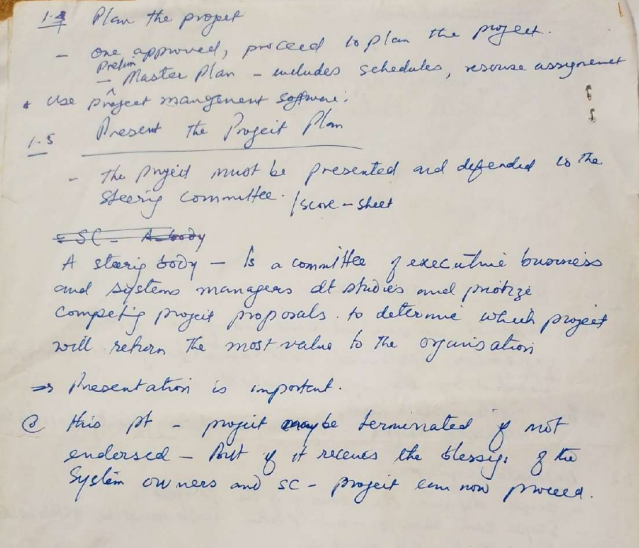 1.4 Plan the project
- one approved, proceed to plan the project.
Prelim
- Master Plan - includes schedules, resouse assignment
* Use Project mangement software.
1.5 Present the Project Plan
- the project must be presented and defended to the
steering committee. / score-sheet
- SC - A body
A steerig body - Is a committee of executive business
and systems managers dt studies and priotize
competig project proposals. to determie which project
will return the most value to the organisation
⇒ Presentation is important.
@ this pt - project maybe terminated if not
endorsed - But if it receives the blessigs of the
System owners and SC - project can now proceed.